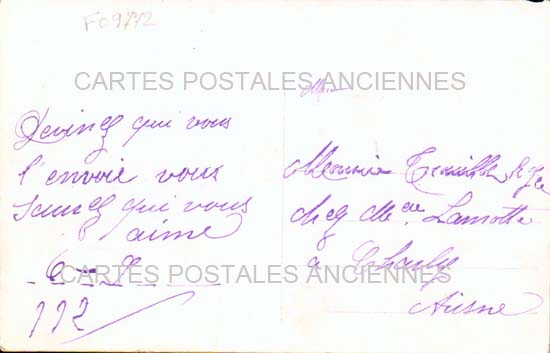 F09772
CARTES POSTALES ANCIENNES
Devinez qui vous
l'envoie vous
saurez qui vous
aime
Monsieur
chez Me Lamotte
à Chauly
Aisne
CARTES POSTALES ANCIENNES
112